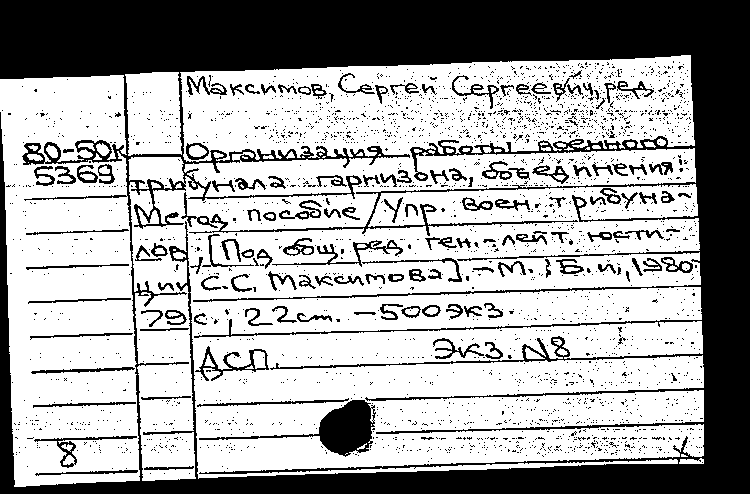 Максимов, Сергей Сергеевич, ред.
80-50к Организация работы военного
5369 трибунала гарнизона, объединения:
Метод. пособие / Упр. воен. трибуна-
лов; [Под общ. ред. ген.-лейт. юсти-
ции С.С. Максимова]. - М.: Б. и., 1980.
79 с.; 22 cm. - 500 экз.
ДСП. Экз. N8
8